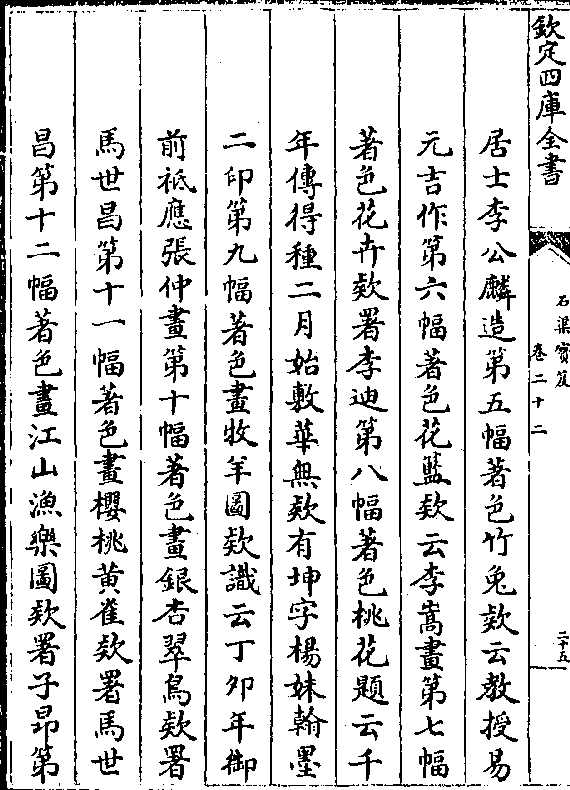 欽定四庫全書
石渠寳笈
卷二十二
二十五
居士李公麟造第五幅著色竹兔欵云教授易
元吉作第六幅著色花籃欵云李嵩畫第七幅
著色花卉欵署李迪第八幅著色桃花題云千
年傳得種二月始敷華無欵有坤字楊妹翰墨
二印第九幅著色畫牧羊圖欵識云丁夘年御
前祗應張仲畫第十幅著色畫銀杏翠鳥欵署
馬世昌第十一幅著色畫櫻桃黄雀欵署馬世
昌第十二幅著色畫江山漁樂圖欵署子昂第